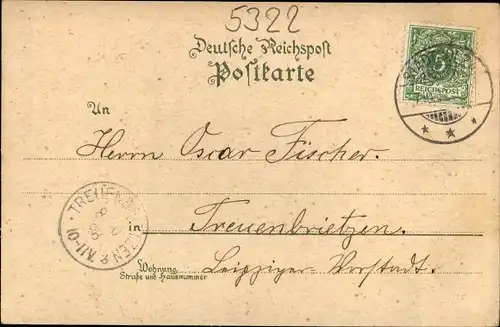 5322
Deutsche Reichspost
Postkarte
5
REICHSPOST
An
Herrn Oscar Fischer.
TREUENB ZEN
10-11V
8 2 98
in Treuenbrietzen.
Wohnung
Straße und Hausnummer
Leipziger-Vorstadt.